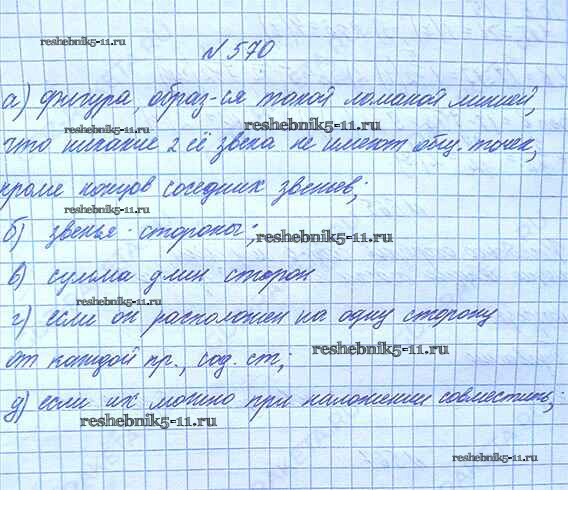 reshebnik5-11.ru
N 570
а) фигура, образ-ся такой ломаной линией,
reshebnik5-11.ru
reshebnik5-11.ru
что никакие 2 её звена не имеют общ. точек,
кроме концов соседних звеньев;
reshebnik5-11.ru
б) звенья - стороны;
reshebnik5-11.ru
в) сумма длин сторон
reshebnik5-11.ru
г) если он расположен на одну сторону
от каждой пр., сод. ст;
reshebnik5-11.ru
д) если их можно при наложении совместить;
reshebnik5-11.ru
reshebnik5-11.ru